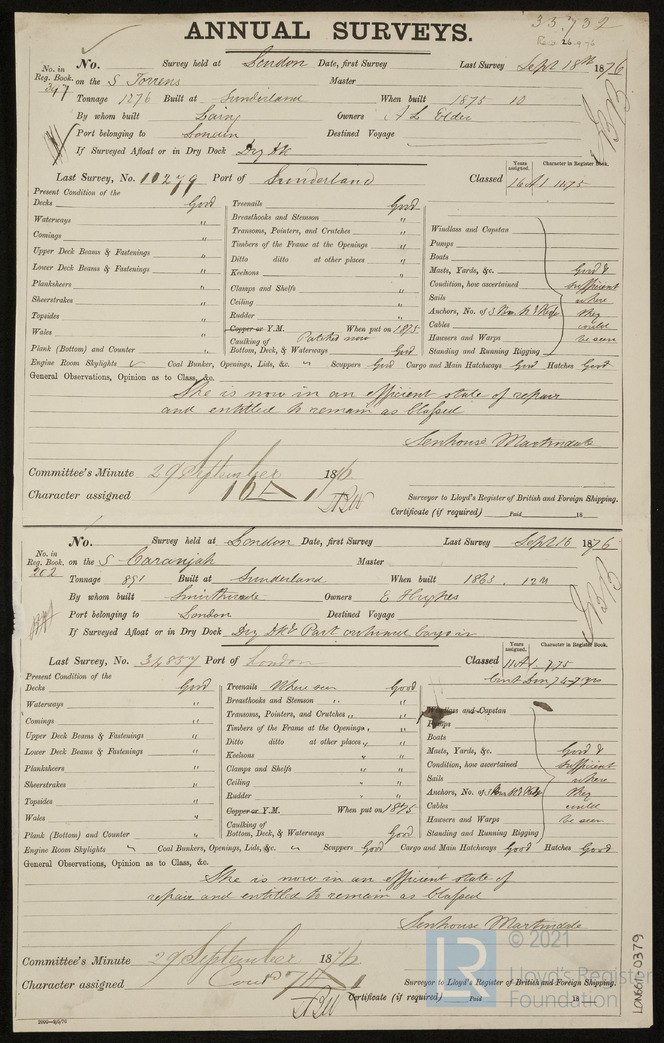 33,732
ANNUAL SURVEYS.
Rec 26.9.76
No. in Reg. Book. No. Survey held at London Date, first Survey Last Survey Sept 18th 1876
347 on the S Torrens Master
Tonnage 1276 Built at Sunderland When built 1875 10
By whom built Laing Owners A L Elder
Port belonging to London Destined Voyage
If Surveyed Afloat or in Dry Dock Dry Dk
Last Survey, No. 11279 Port of Sunderland Classed Years assigned. Character in Register Book.
16 A1 11.75
Present Condition of the
Decks Good Treenails Good
Waterways " Breasthooks and Stemson " Windlass and Capstan
Comings " Transoms, Pointers, and Crutches " Pumps
Upper Deck Beams & Fastenings " Timbers of the Frame at the Openings " Boats
Lower Deck Beams & Fastenings " Ditto ditto at other places " Masts, Yards, &c. Good &
Planksheers " Keelsons " Condition, how ascertained sufficient
Sheerstrakes " Clamps and Shelfs " Sails where
Topsides " Ceiling " Anchors, No. of they
Wales " Rudder " Cables could
Plank (Bottom) and Counter " Copper or Y.M. When put on 1875 Hawsers and Warps be seen
Caulking of Bottom, Deck, & Waterways Patched now Good Standing and Running Rigging
Engine Room Skylights Coal Bunkers, Openings, Lids, &c. " Scuppers Good Cargo and Main Hatchways Good Hatches Good
General Observations, Opinion as to Class, &c.
She is now in an efficient state of repair
and entitled to remain as Classed
Senhouse Martindale
Committee's Minute 29 September 1876
Character assigned 16 A 1 Surveyor to Lloyd's Register of British and Foreign Shipping.
Certificate (if required) Paid 18
No. in Reg. Book. No. Survey held at London Date, first Survey Last Survey Sept 16 1876
202 on the S Caranjah Master
Tonnage 891 Built at Sunderland When built 1863 12 m
By whom built Owners E Hughes
Port belonging to London Destined Voyage
If Surveyed Afloat or in Dry Dock Dry Dk & Part cargo in
Last Survey, No. 34857 Port of London Classed Years assigned. Character in Register Book.
11 A1 7.75
Present Condition of the
Decks Good Treenails Where seen Good
Waterways " Breasthooks and Stemson " Windlass and Capstan
Comings " Transoms, Pointers, and Crutches " Pumps
Upper Deck Beams & Fastenings " Timbers of the Frame at the Openings " Boats
Lower Deck Beams & Fastenings " Ditto ditto at other places " Masts, Yards, &c. Good &
Planksheers " Keelsons " Condition, how ascertained sufficient
Sheerstrakes " Clamps and Shelfs " Sails where
Topsides " Ceiling " Anchors, No. of they
Wales " Rudder " Cables could
Plank (Bottom) and Counter " Copper or Y.M. When put on 1875 Hawsers and Warps be seen
Caulking of Bottom, Deck, & Waterways Good Standing and Running Rigging
Engine Room Skylights " Coal Bunkers, Openings, Lids, &c. " Scuppers Good Cargo and Main Hatchways Good Hatches Good
General Observations, Opinion as to Class, &c.
She is now in an efficient state of
repair and entitled to remain as Classed
Senhouse Martindale
Committee's Minute 29 September 1876
Character assigned Surveyor to Lloyd's Register of British and Foreign Shipping.
Certificate (if required) Paid 18
LR © 2021
Lloyd's Register
Foundation
LON661-0379